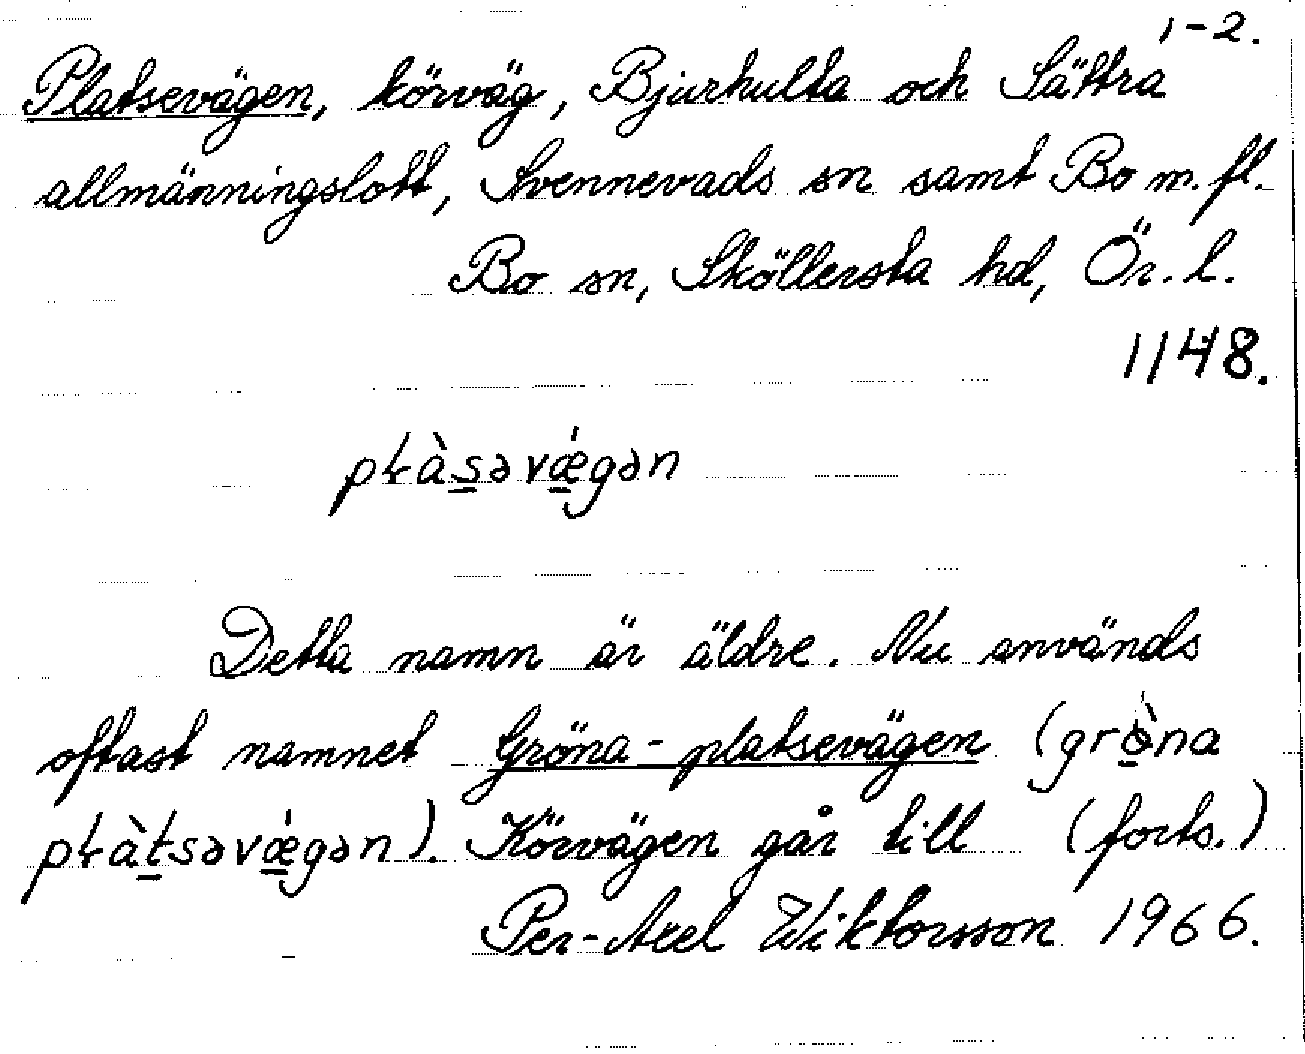 1-2.
Platsevägen, körväg, Bjurhulta och Sättra
allmänningslott, Svennevads sn samt Bo m. fl.
Bo sn, Sköllersta hd, Ör. l.
1148.
pɫàs̲əvǽ̲gən
Detta namn är äldre. Nu används
oftast namnet Gröna-platsevägen (grö̲̀na
pɫàt̲səvǽ̲gən). Körvägen går till (forts.)
Per-Axel Wiktorsson 1966.